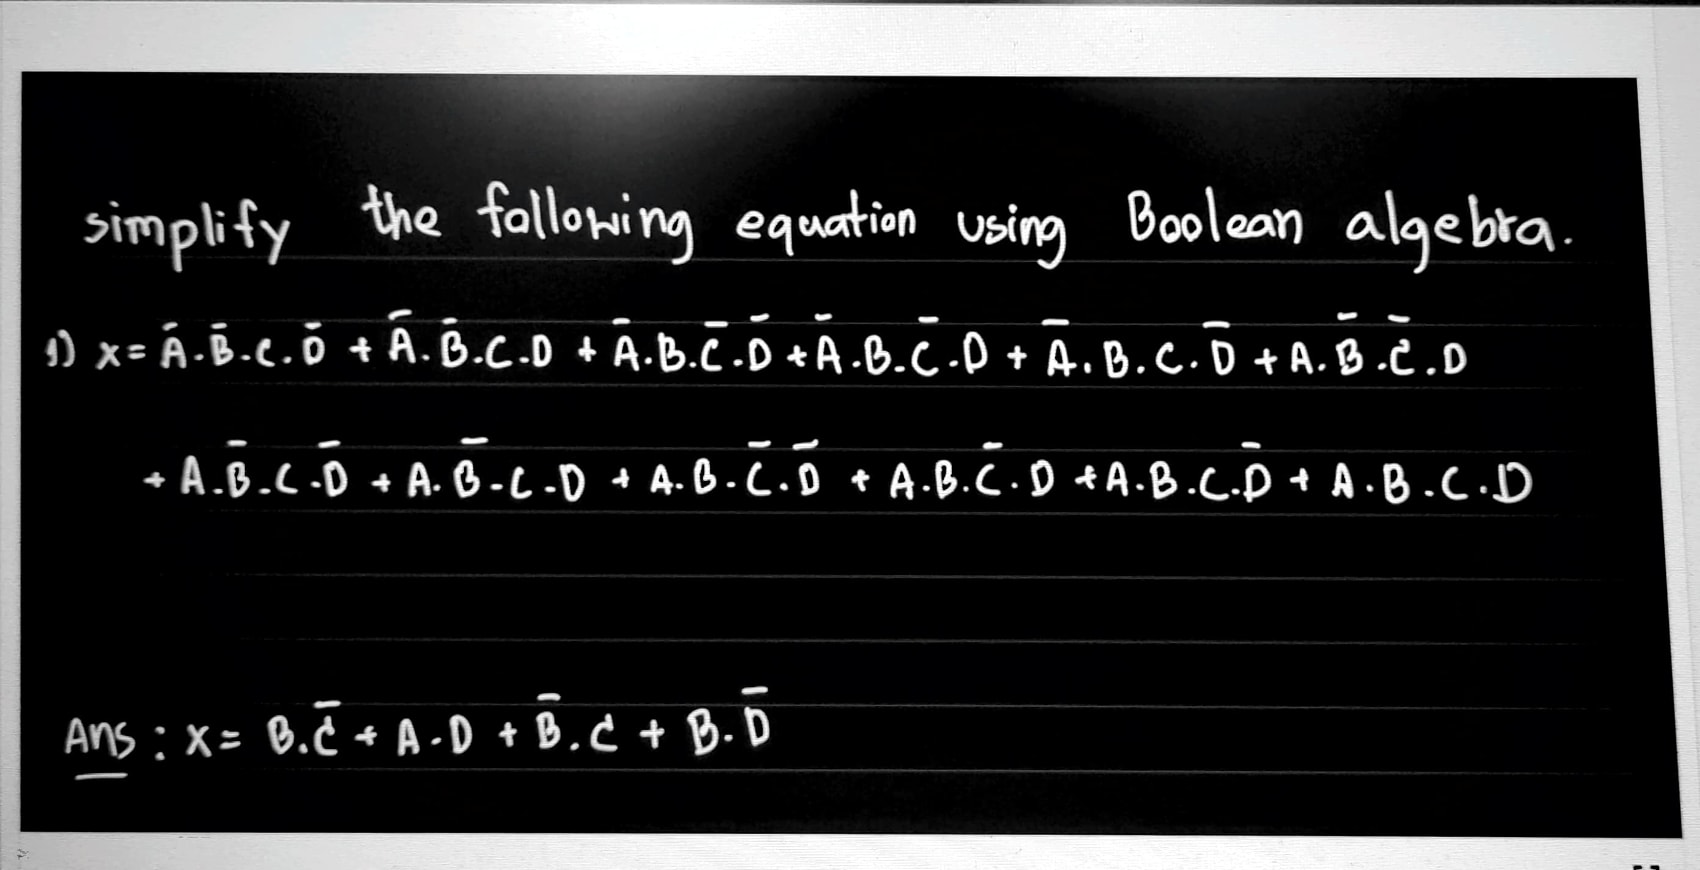 simplify the following equation using Boolean algebra.
1) x = A̅.B̅.C.D̅ + A̅.B̅.C.D + A̅.B.C̅.D̅ + A̅.B.C̅.D + A̅.B.C.D̅ + A.B̅.C̅.D
+ A.B̅.C.D̅ + A.B̅.C.D + A.B.C̅.D̅ + A.B.C̅.D + A.B.C.D̅ + A.B.C.D
Ans : x = B.C̅ + A.D + B̅.C + B.D̅